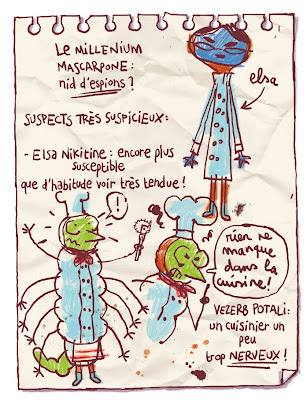 Le MiLLENiUM
MASCARPONE:
nid d'espions?
elsa
SUSPECTS TRÈS SUSPICIEUX:
- ELSA NIKITINE: encore plus
susceptible
que d'habitude voir très tendue!
!
rien ne
manque
dans la
cuisine!
VEZERB POTALI:
un cuisinier un
peu
trop NERVEUX!